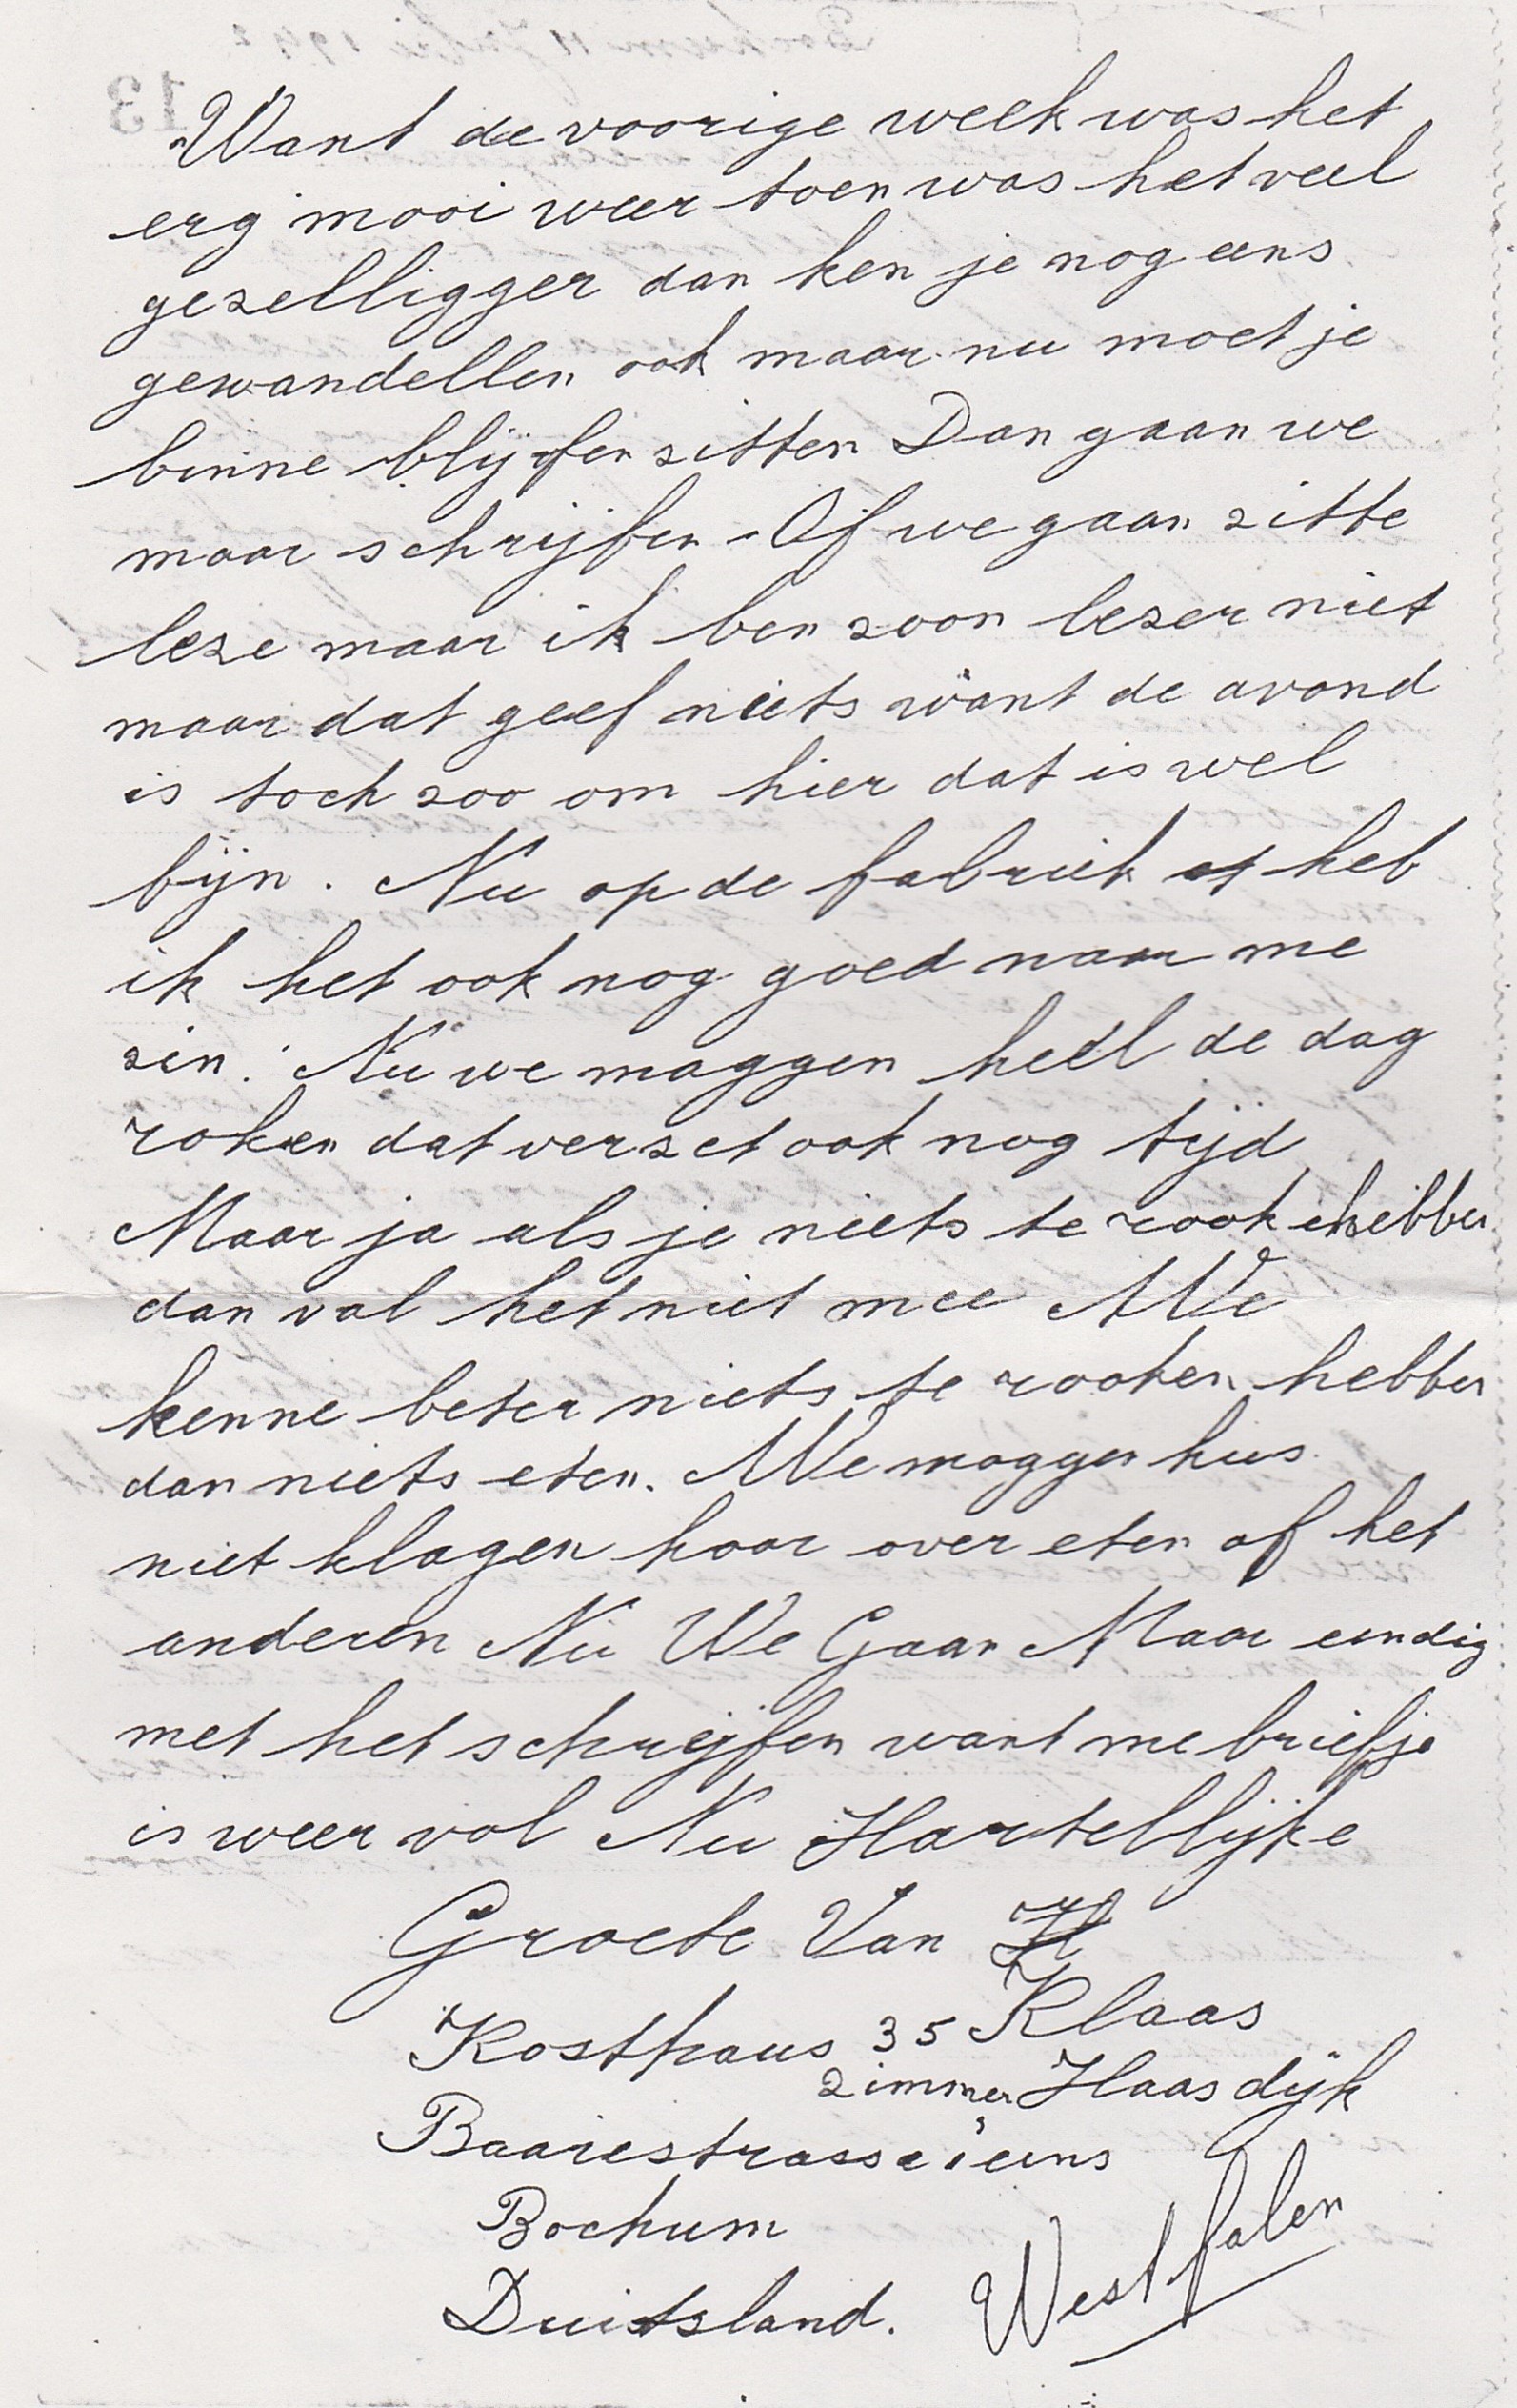 Want de voorige week was het
erg mooi weer toen was het veel
geselligger dan ken je nog eens
gewandellen ook maar nu moet je
binne blijfen sitten Dan gaan we
maar schrijfen. Of we gaan sitte
lese maar ik ben soon leser niet
maar dat geef niets want de avond
is toch soo om hier dat is wel
fijn. Nu op de fabriek heb
ik het ook nog goed naar me
sin. Nu we maggen heel de dag
roken dat verset ook nog tijd
Maar ja als je niets te rook hebben
dan val het niet mee We
kenne beter niets te rooken hebben
dan niets eten. We maggen hier
niet klagen hoor over eten of het
anderen Nu We Gaan Maar eindig
met het schrijfen want me briefje
is weer vol Nu Hartellijke
Groete Van
Klaas
Haasdijk
Kosthaus 35
Zimmer
Baarestrasse eins
Bochum
Duitsland. Westfalen
13